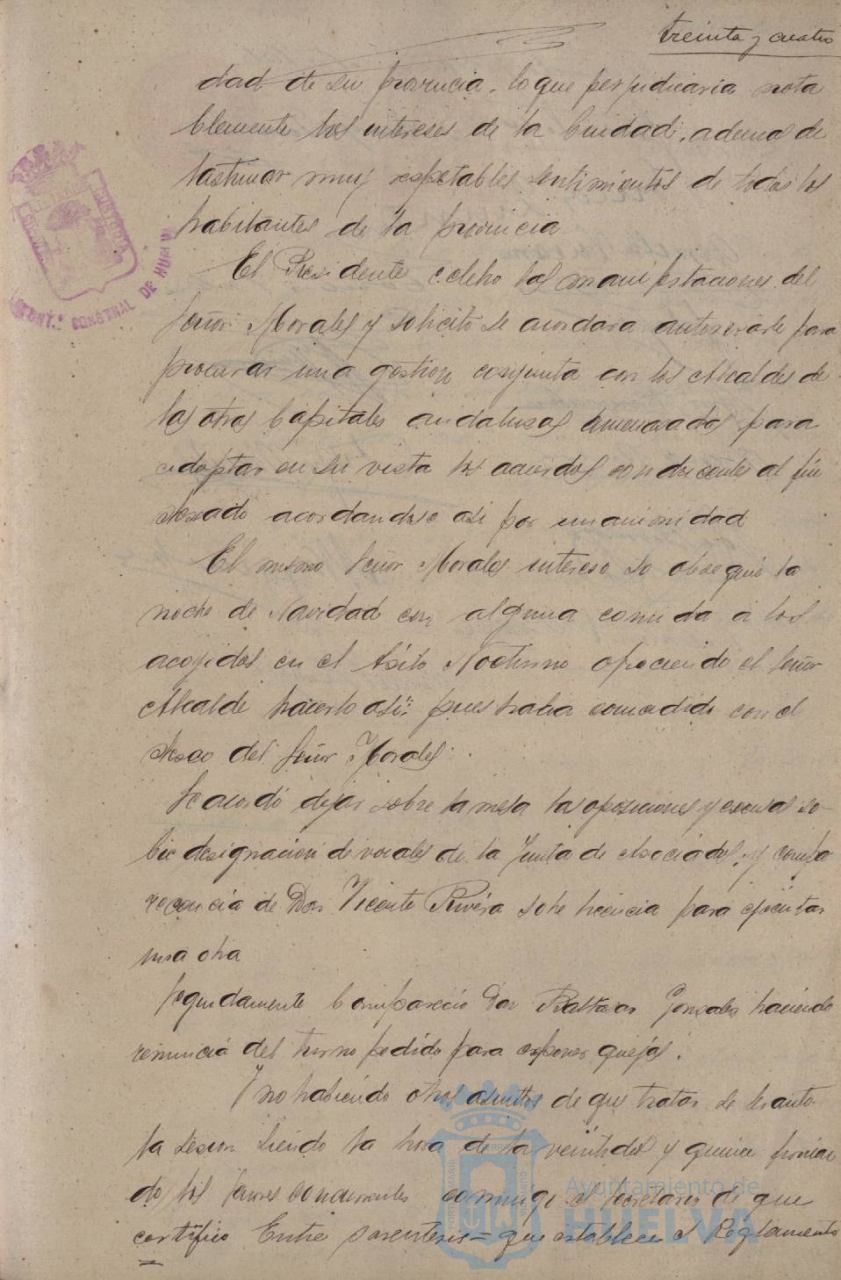 treinta y cuatro
dad de su provincia, lo que perjudicaria nota
blemente los intereses de la Ciudad, ademas de
lastimar muy respetables sentimientos de todos los
habitantes de la provincia
El Presidente celebro las manifestaciones del
Señor Morales y solicitó se acordara autorizarle para
procurar una gestion conjunta con los Alcaldes de
las otras Capitales andaluzas amenazadas para
adoptar en su vista los acuerdos conducentes al fin
deseado acordandose asi por unanimidad
El mismo Señor Morales intereso se obsequie la
noche de Navidad con alguna comida a los
acogidos en el Asilo Nocturno ofreciendo el Señor
Alcalde hacerlo asi: pues habia coincidido con el
deseo del Señor Morales
Se acordó dejar sobre la mesa las oposiciones y excusas so-
bre designacion de vocales de la Junta de Asociados, y compa
recencia de Don Vicente Rivera sobre licencia para ejecutar
una obra
Seguidamente Compareció Don Baltasar Gonzalez haciendo
renuncia del turno pedido para exponer quejas.
Y no habiendo otros asuntos de que tratar se levantó
la sesion siendo la hora de las veintidos y quince firman
do los Señores Concurrentes conmigo el Secretario de que
certifico Entre parentesis = que establece el Reglamento
Ayuntamiento de
HUELVA
CONST.L DE HUELVA